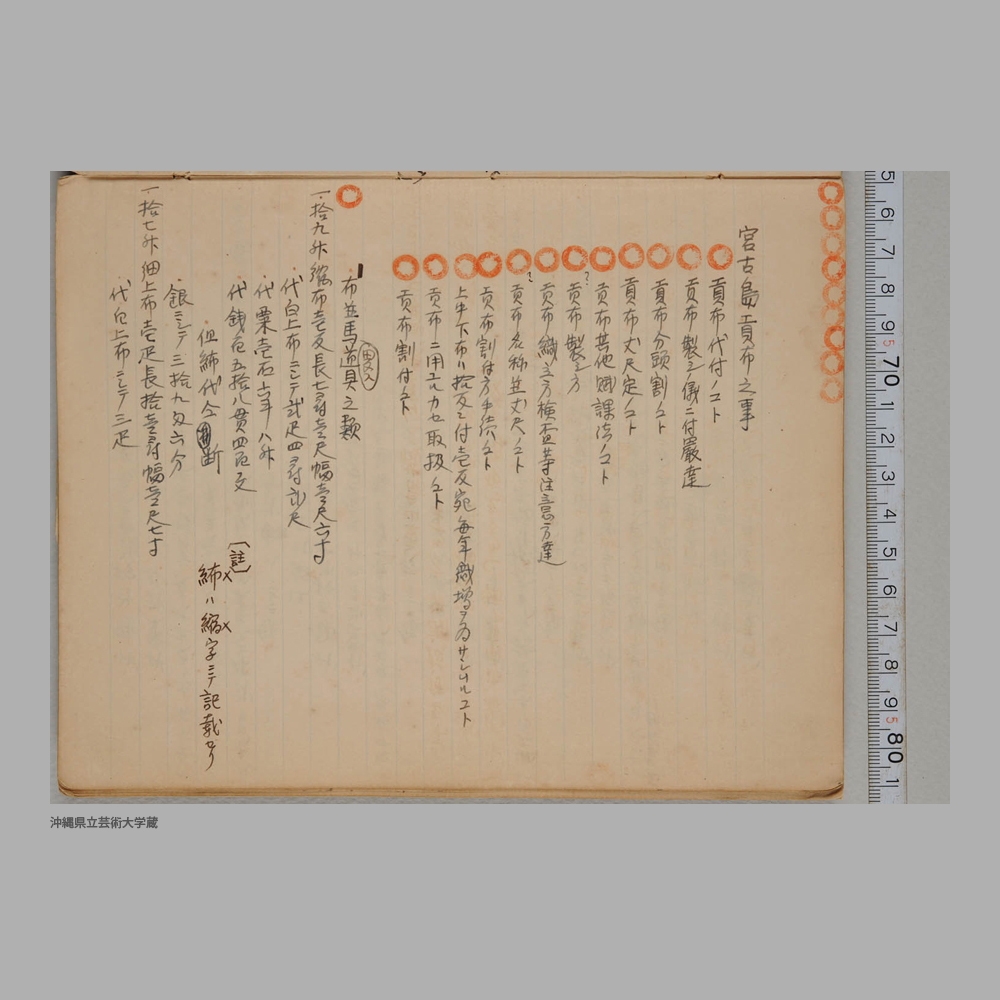 宮古島貢布之事
貢布代付ノコト
貢布製之儀ニ付嚴達
貢布分頭割ノコト
貢布丈尺定ノコト
貢布其他賦課法ノコト
貢布製之方
貢布織立方検査等注意方達
貢布名称並丈尺ノコト
貢布割付方手続ノコト
上中下布八拾反ニ付壱反宛毎年織増
貢布ニ用ユルカセ取扱ノコト
貢布割付ノコト
布並馬道具之類
一、拾九舛縮布壱反長七尋壱尺幅壱尺六寸
代白上布ニシテ弐疋四尋弐尺
代粟壱石六斗八舛
代銭百五拾八貫四百文
但
銀ニシテ三拾九匁六分
一拾七舛細上布壱疋長拾壱尋幅壱尺七寸
代白上布ニシテ三疋
〔註〕
ハ縮字ニテ記載セリ
5 6 7 8 9 5 70 1 2 3 4 5 6 7 8 9 5 80 1
沖縄県立芸術大学蔵